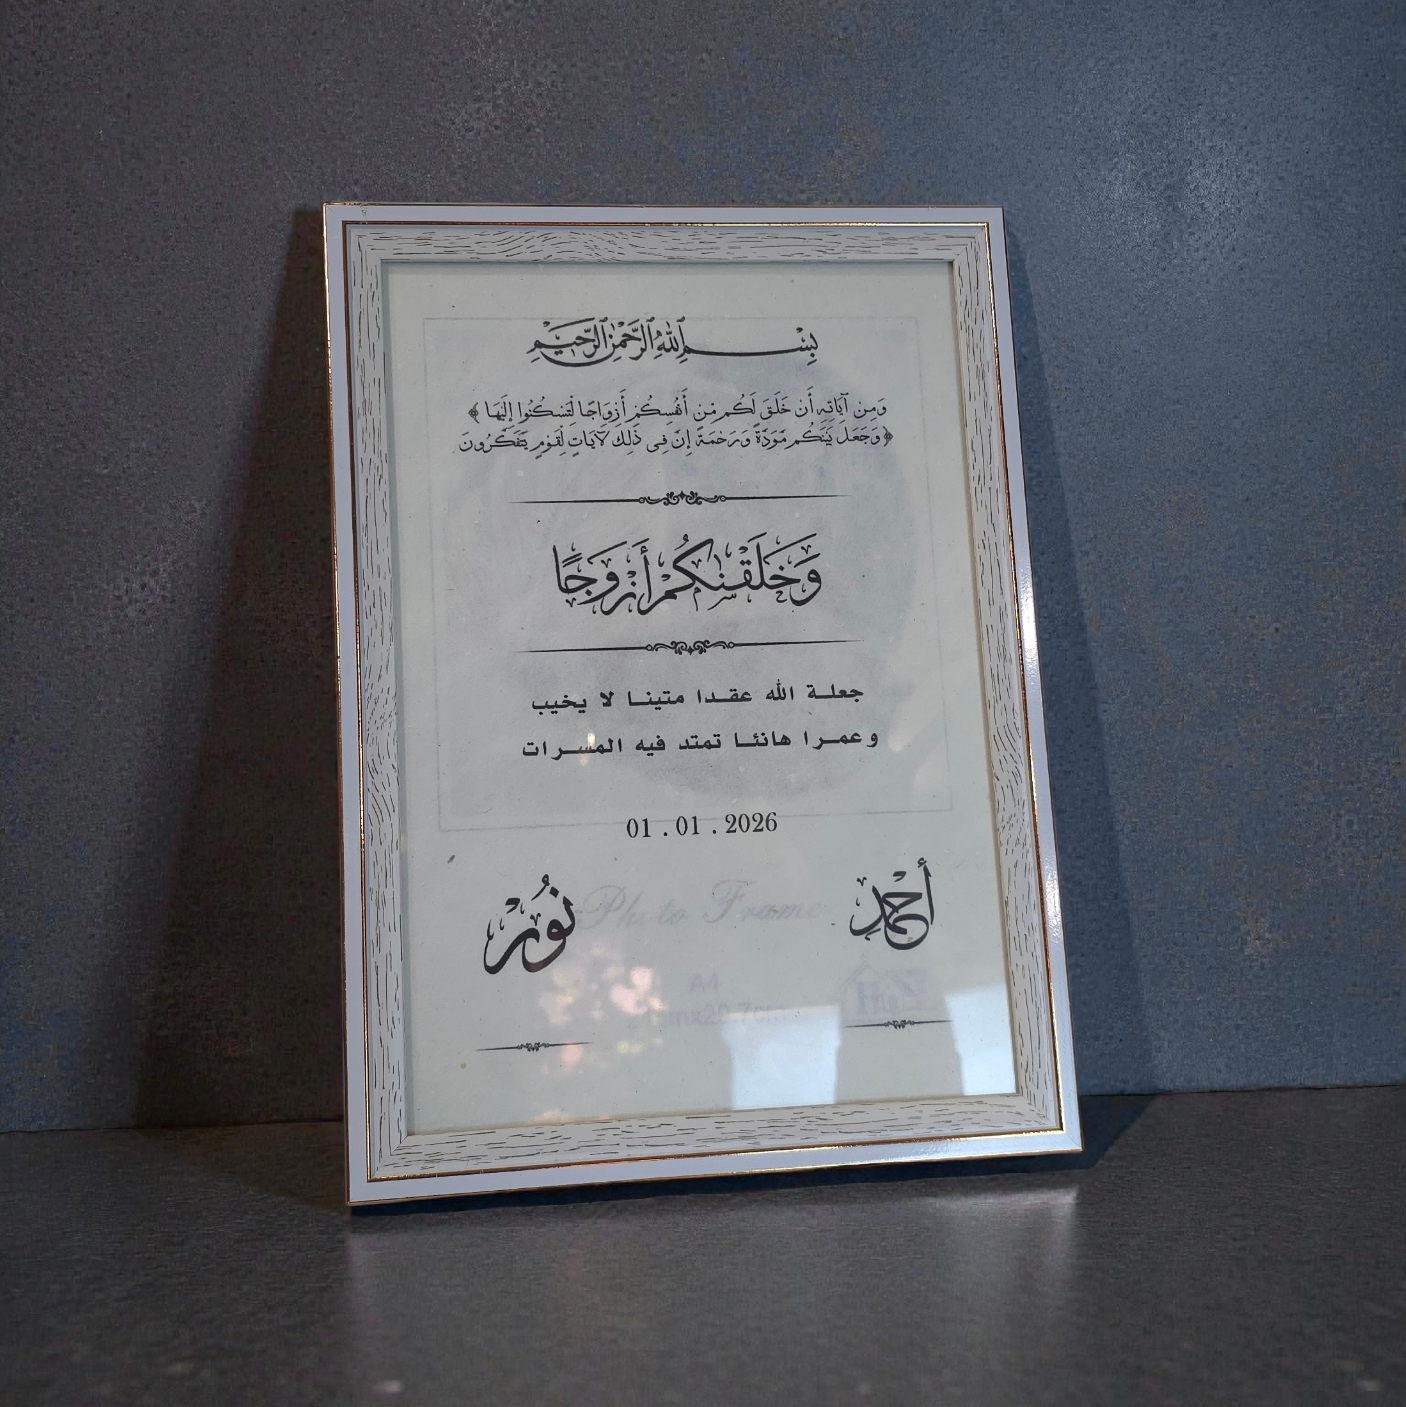 بِسْمِ اللَّهِ الرَّحْمَٰنِ الرَّحِيمِ
وَمِن آيَاتِهِ أَن خَلَقَ لَكُم مِّن أَنفُسِكُم أَزوَاجًا لِّتَسكُنُوا إِلَيهَا ﴾
﴿ وَجَعَلَ بَينَكُم مَّوَدَّةً وَرَحمَةً إِنَّ فِي ذَٰلِكَ لَآيَاتٍ لِّقَومٍ يَتَفَكَّرُونَ
وَخَلَقْنَٰكُمْ أَزْوَٰجًا
جعلة الله عقدا متينا لا يخيب
وعمرا هانئا تمتد فيه المسرات
01 . 01 . 2026
أحمد
نُورْ
Photo Frame
A4